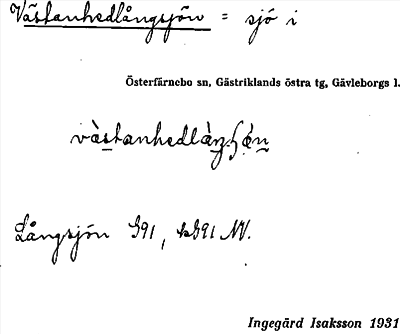 Västanhedlångsjön = sjö i
Österfärnebo sn, Gästriklands östra tg, Gävleborgs l.
Långsjön G91, NV.
Ingegärd Isaksson 1931